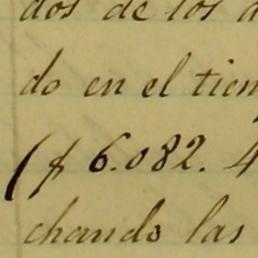 dos de los
do en el tiem
($ 6.082. 4
chando las